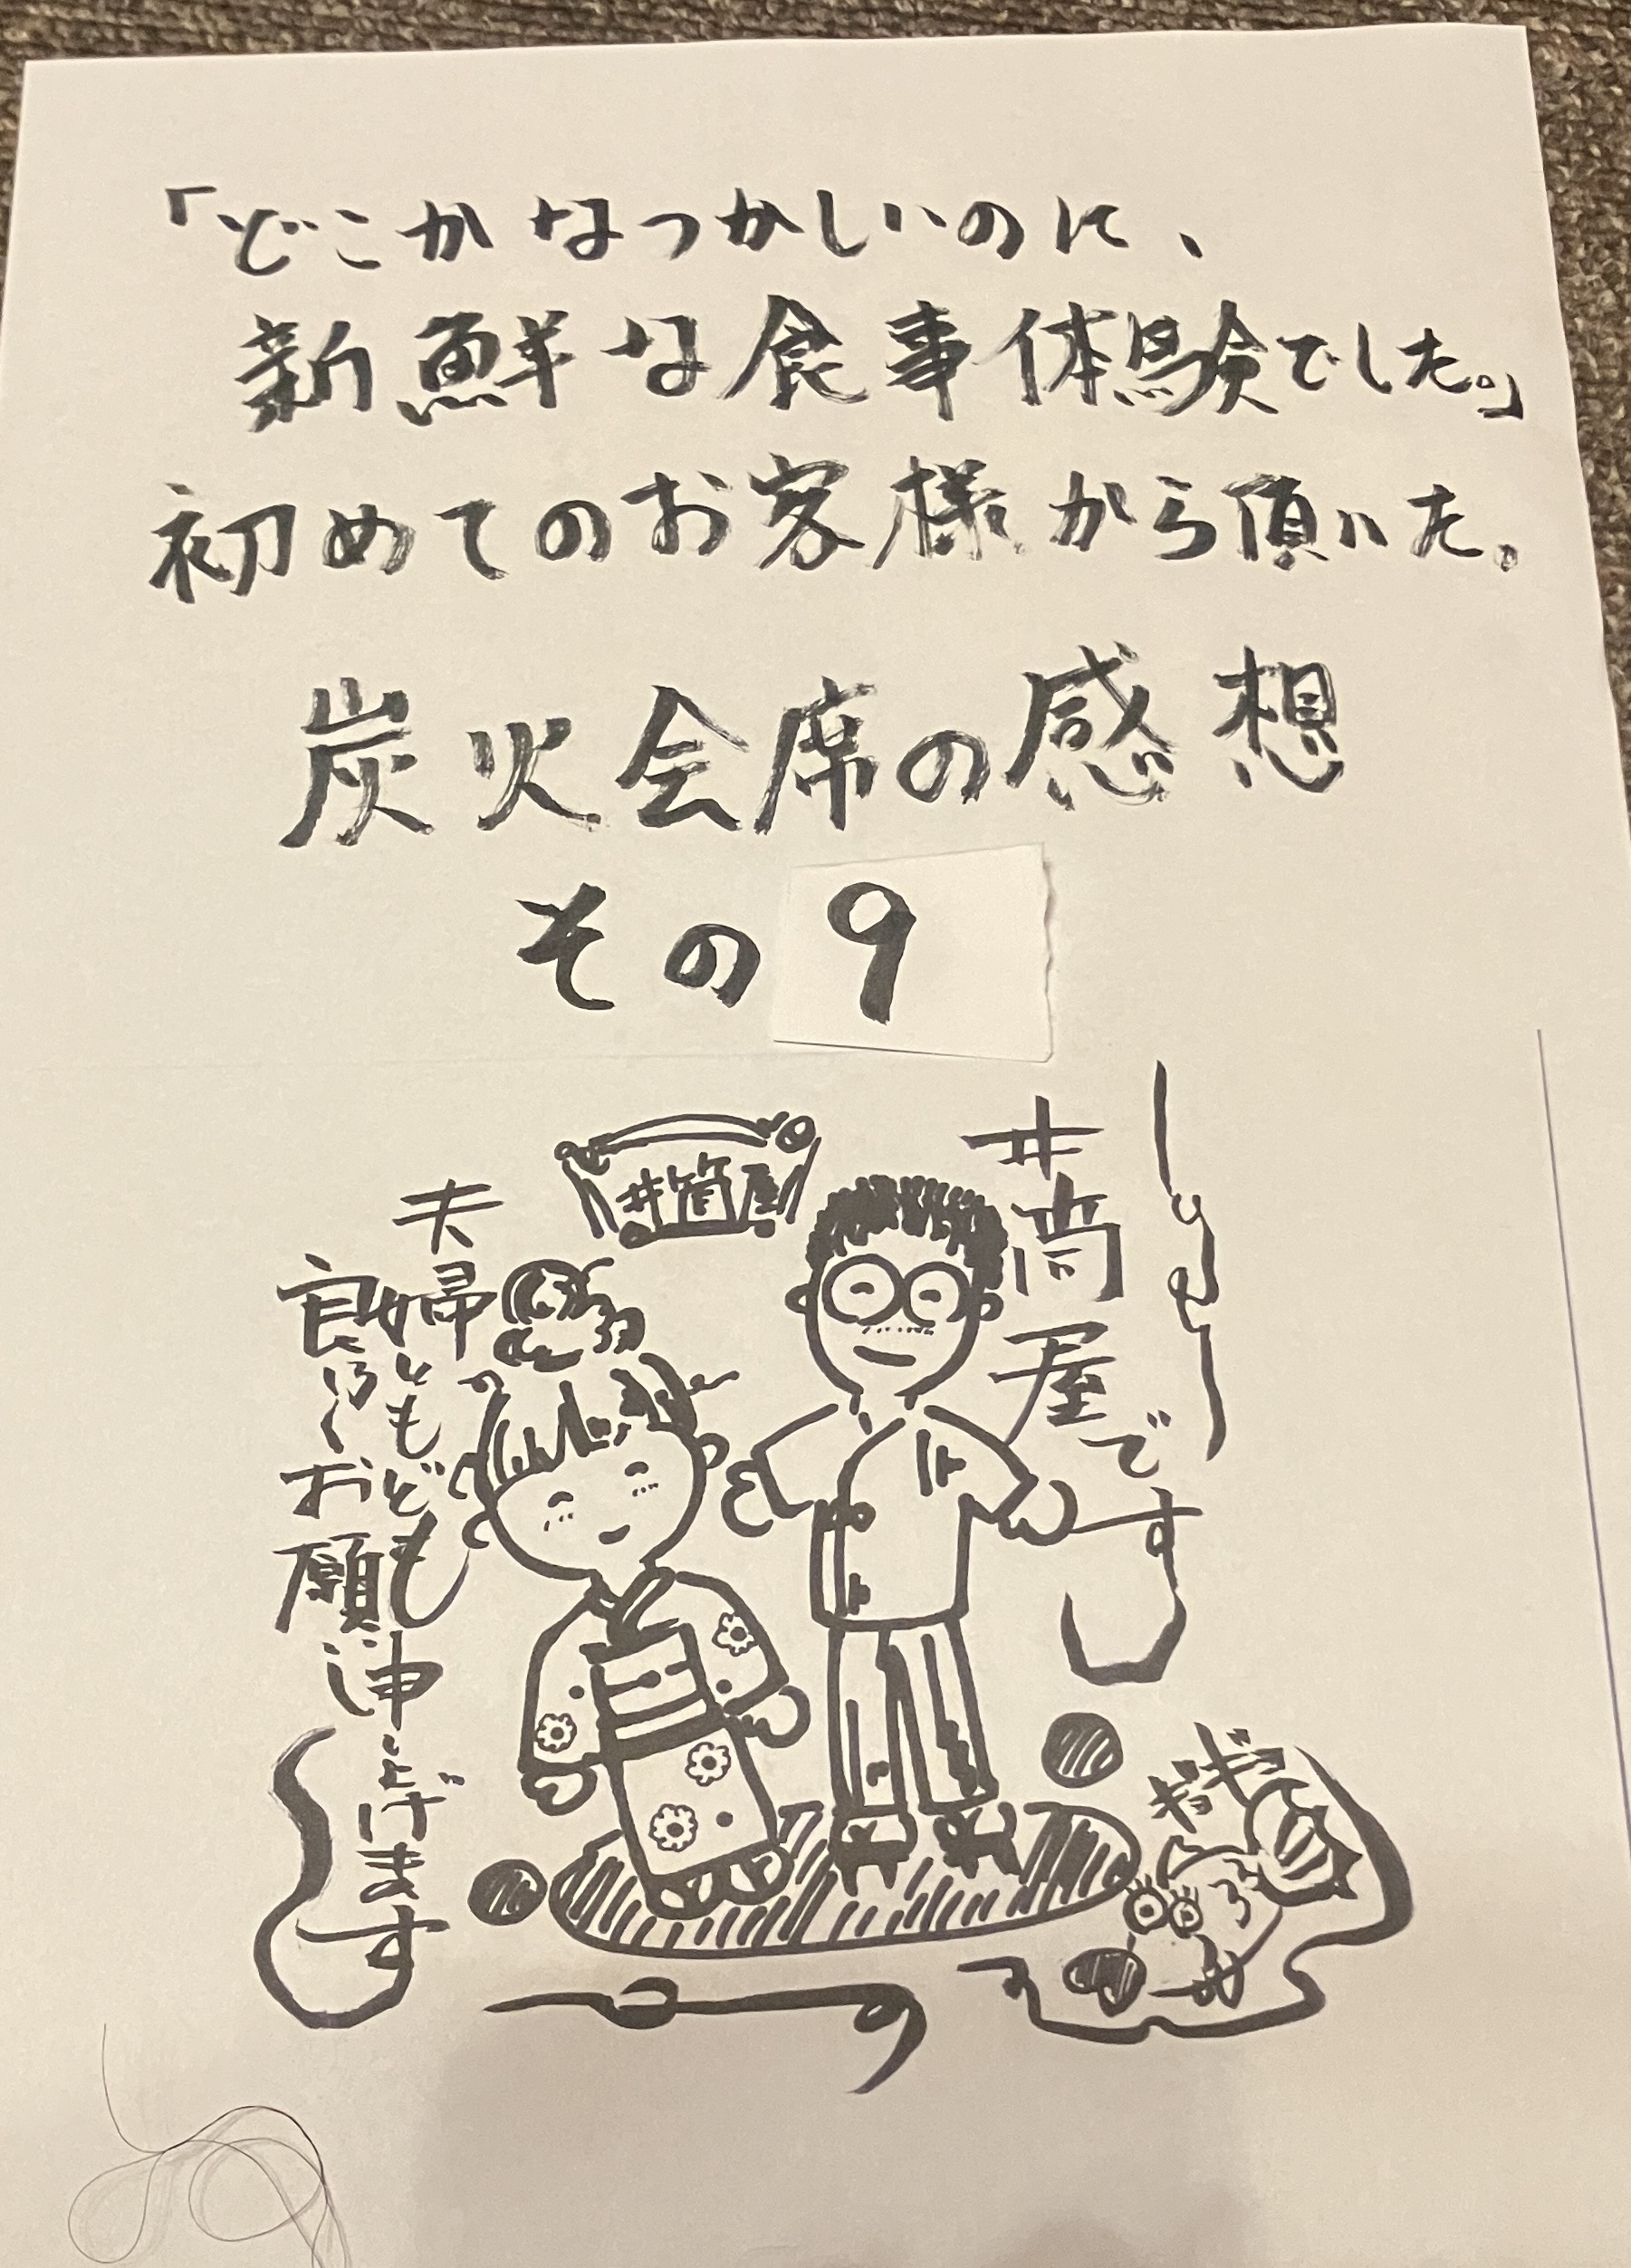 「どこかなつかしいのに、
新鮮な食事体験でした。」
初めてのお客様から頂いた。
炭火会席の感想
その9
井筒屋
井筒屋です
夫婦ともども
良ろしくお願い
申し上げます
ギョギョ